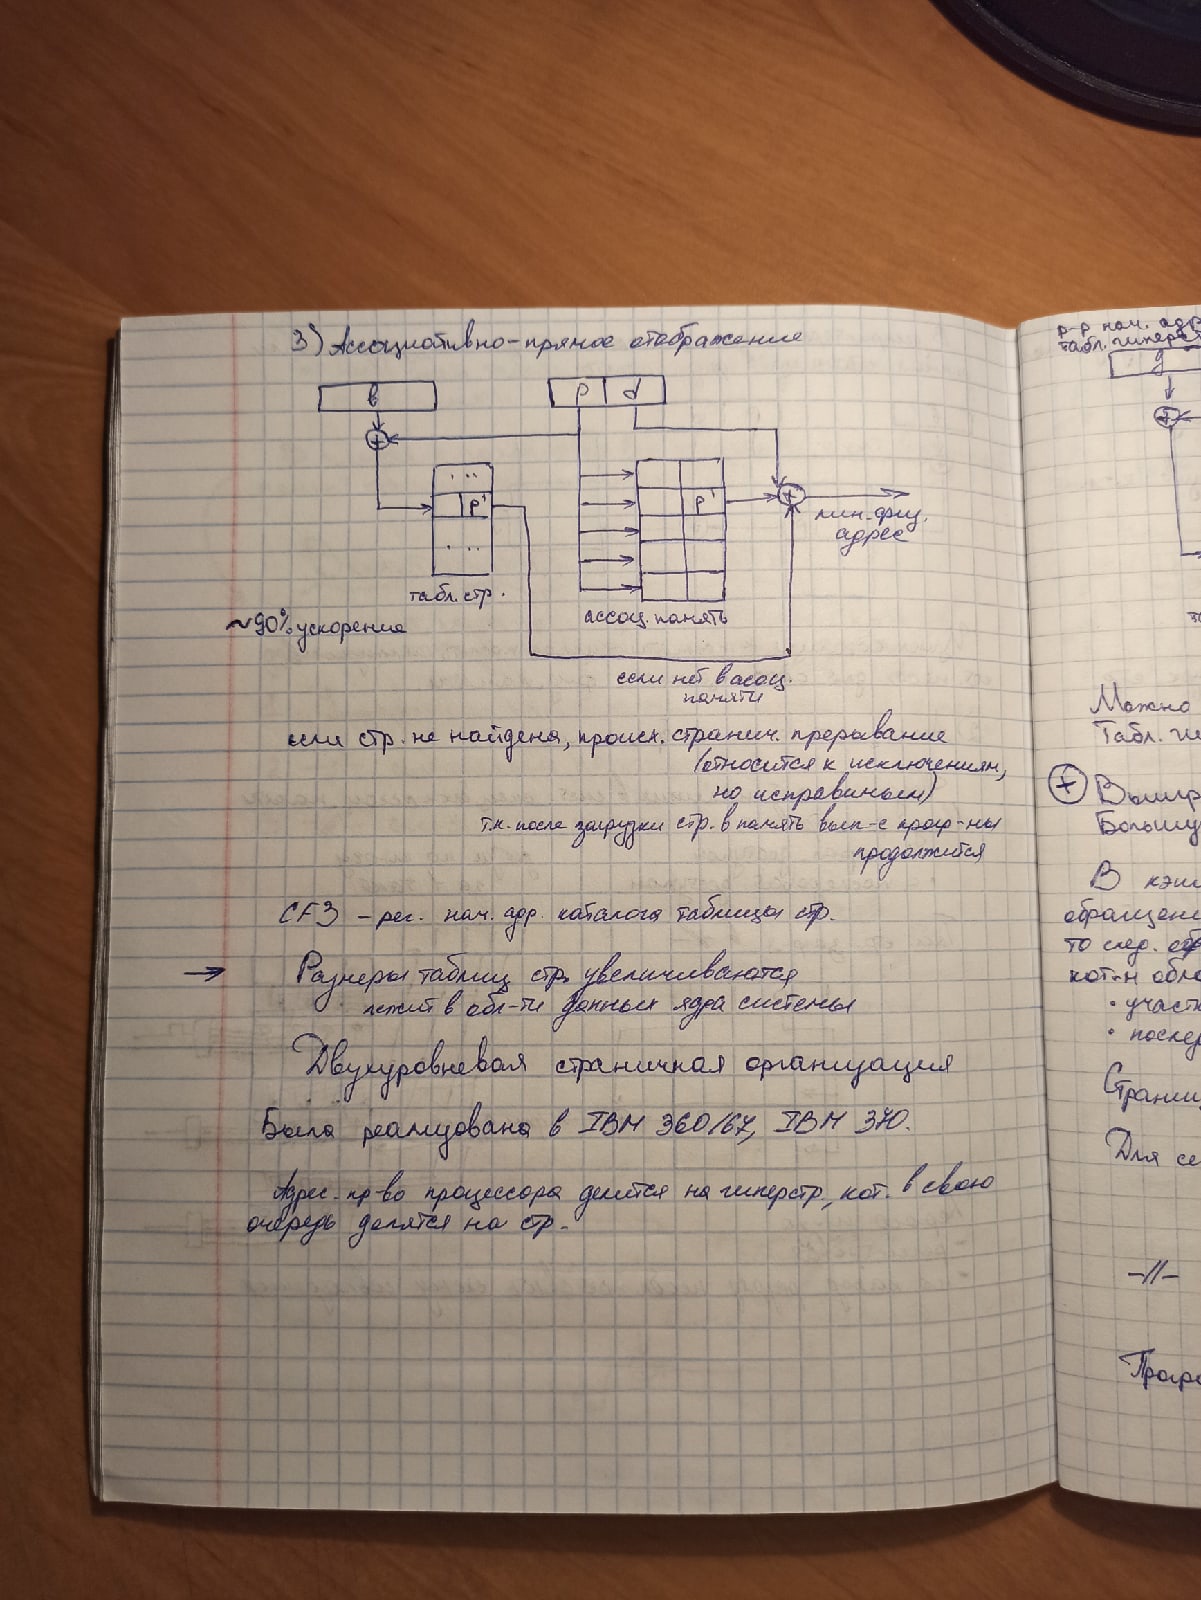 3) Ассоциативно-прямое отображение
b
p d
+
...
p'
...
p'
+
лин. физ.
адрес
табл. стр.
ассоц. память
~90% ускорение
если нет в ассоц.
памяти
если стр. не найдена, происх. странич. прерывание
(относится к исключениям,
но исправимым)
т.к. после загрузки стр. в память вып-е прогр-мы
продолжится
CF3 – рег. нач. адр. каталога таблицы стр.
→ Размеры таблиц стр. увеличиваются
лежит в обл-ти данных ядра системы
Двухуровневая страничная организация
Была реализована в IBM 360/67, IBM 370.
Адрес. пр-во процессора делится на гиперстр., кот. в свою
очередь делятся на стр.
р-р нач. адр
табл. гиперст
g
+
Можно
Табл. ги
+ Выигр
Большу
В кэш
обращени
то след. обр
кот-м обла
• участк
• послед
Страни
Для се
-//-
Прогр